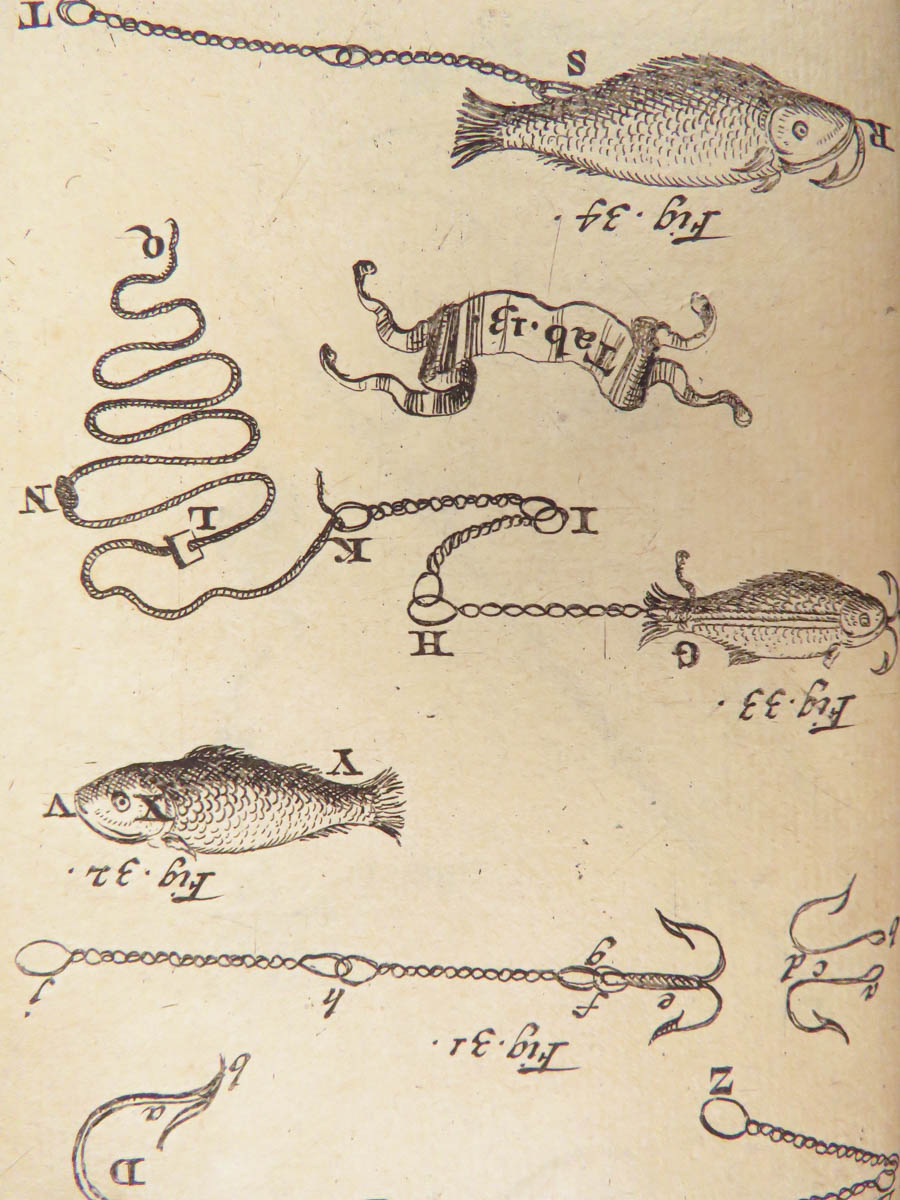 D
a
b
Z
Fig. 31.
a
c d
b
e
f
g
h
i
Fig. 32.
X
V
V
Fig. 33.
G
H
I
K
L
N
Q
Tab. 13
Fig. 34.
R
S
T